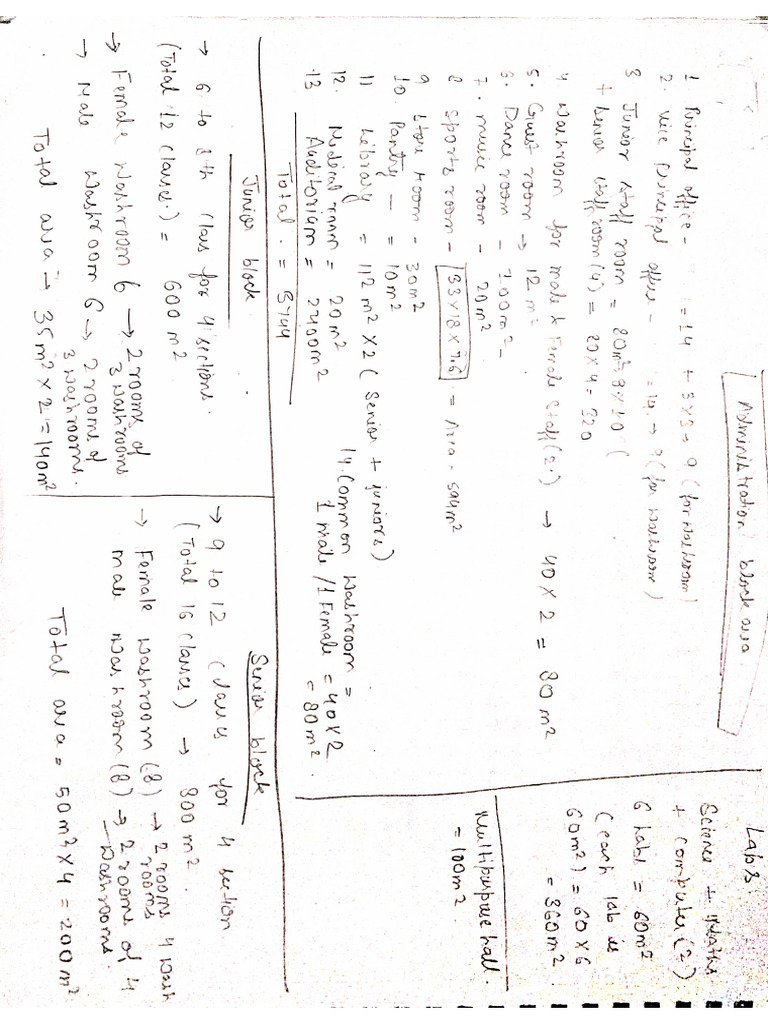 Administration block area.
1 Principal office - = 14 + 3x3 → 9 (for washroom)
2. vice Principal office - = 14. → 9 (for washroom)
3 Junior staff room = 80m²
+ senior staff room (4) = 80 x 4 = 320
4 Washroom for male & Female staff (2.) → 40 x 2 = 80 m²
5. Guest room → 12 m²
6. Dance room - 100m² -
7. music room - 20m²
8 sports room - 33 x 18 x 9.6 = Area = 594m²
9 store room - 30m²
10. Pantry — = 10m²
11 Library = 112m² x 2 (Senior + juniors)
12. Medical room = 20m²
13 Auditorium = 2400m²
14. Common washroom =
1 male / 1 Female = 40x2
= 80m².
Total. = 3744
Labs.
Science + Maths
+ computer (2)
6 Labs = 60m²
(each lab is
60m²) = 60 x 6
= 360m².
Multipurpose hall.
= 100m².
Junior block.
→ 6 to 8th class for 4 sections.
(Total 12 classes) = 600 m².
→ Female washroom 6 → 2 rooms of
3 washrooms
→ Male washroom 6 → 2 rooms of
3 washrooms.
Total area → 35m² x 2 = 140m²
Senior block
→ 9 to 12 classes for 4 section
(Total 16 classes) → 800 m².
→ Female washroom (8) → 2 rooms 4 wash
rooms
male washroom (8) → 2 rooms of 4
washrooms.
Total area = 50m² x 4 = 200m²